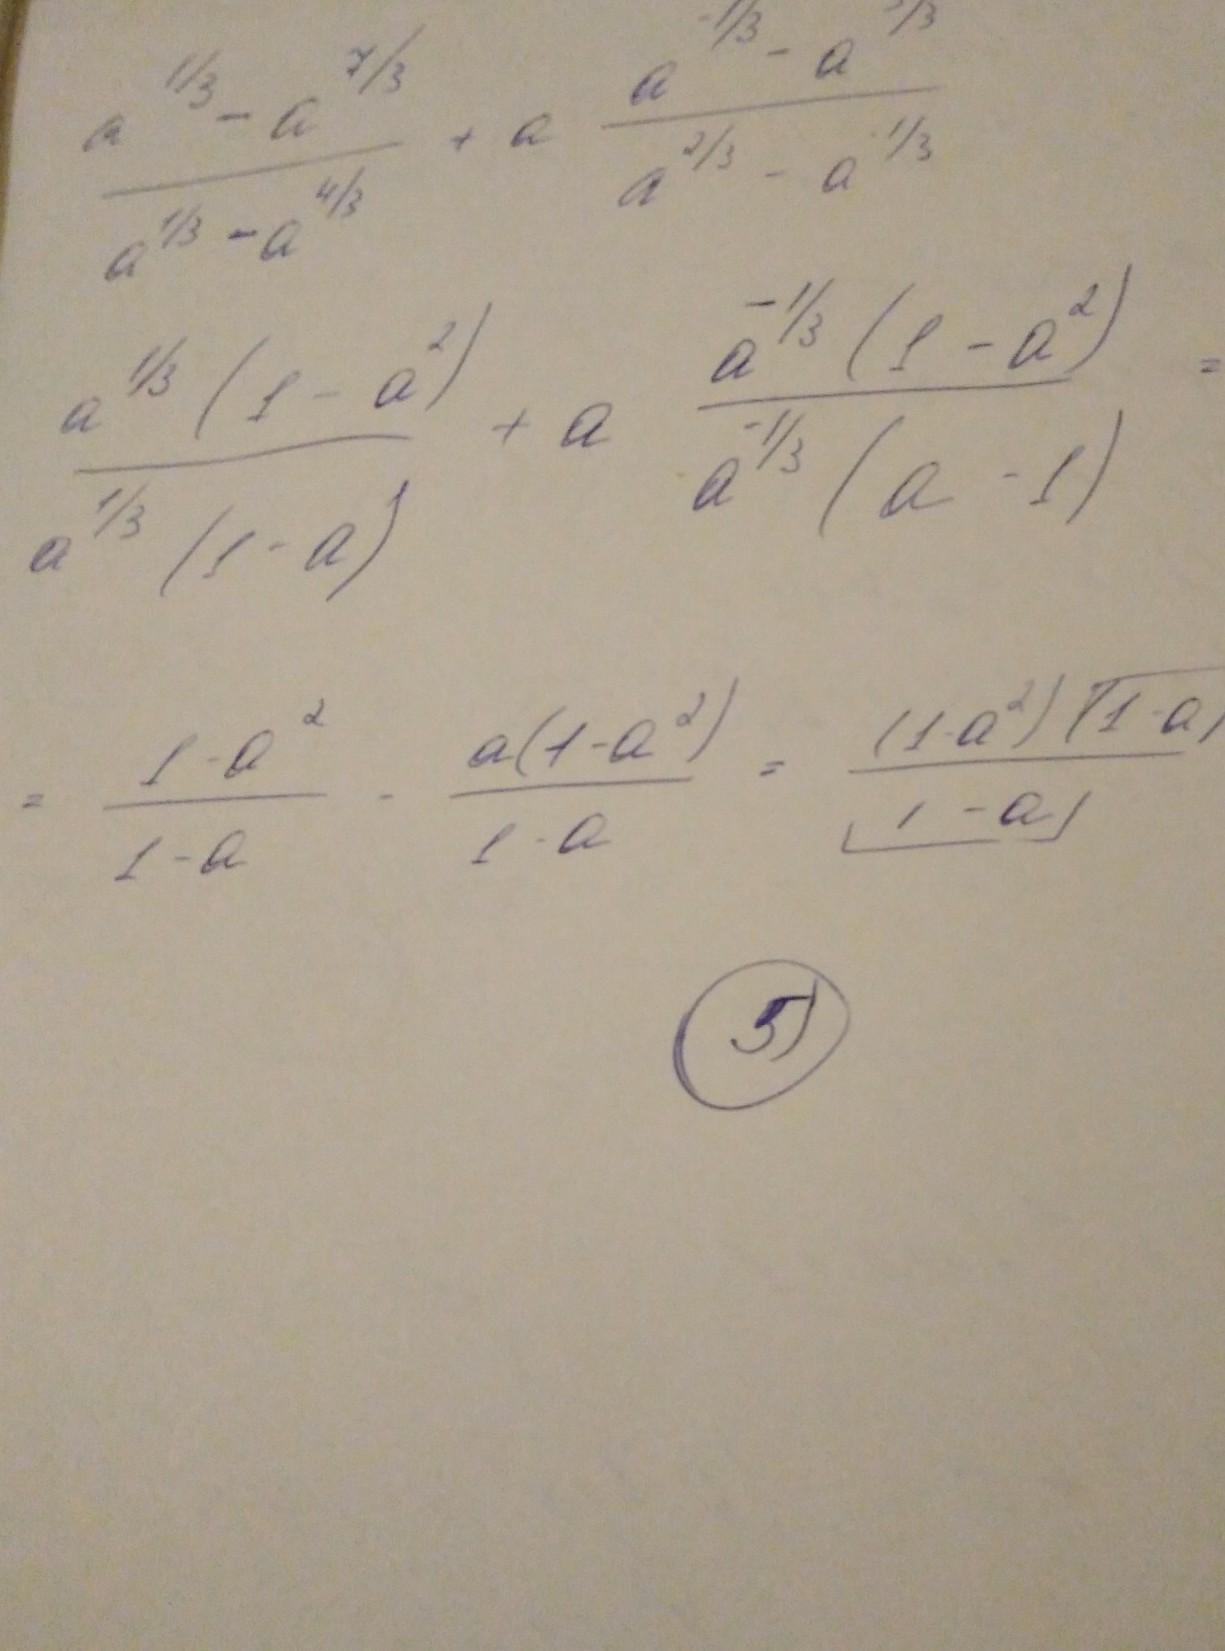 a^{1/3} - a^{7/3} / a^{1/3} - a^{4/3} + a a^{-1/3} - a^{5/3} / a^{2/3} - a^{-1/3}
a^{1/3} (1 - a^2) / a^{1/3} (1 - a) + a a^{-1/3} (1 - a^2) / a^{-1/3} (a - 1) =
= 1 - a^2 / 1 - a - a(1 - a^2) / 1 - a = (1 - a^2) (1 - a) / 1 - a
5)